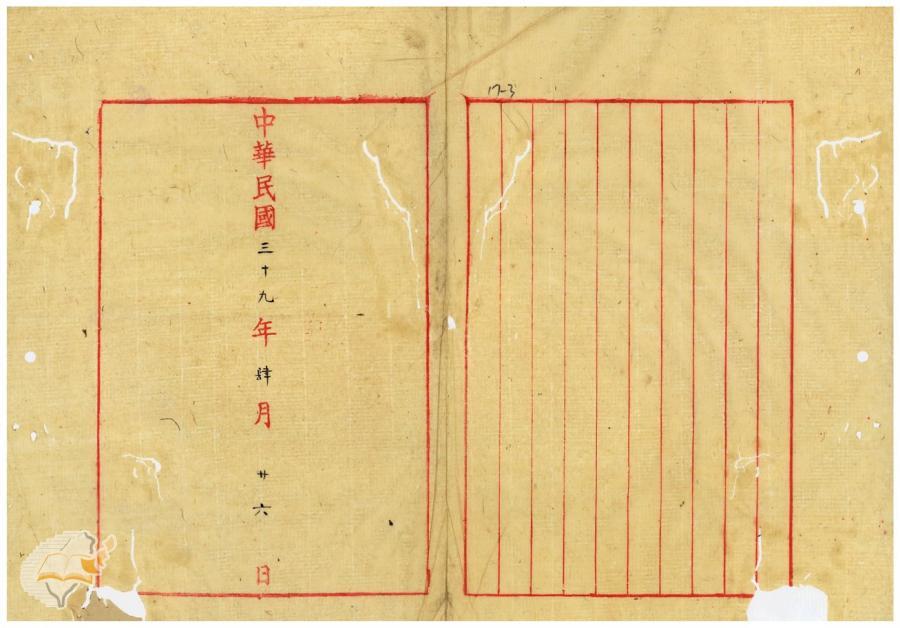 17-3
中華民國三十九年肆月廿六日